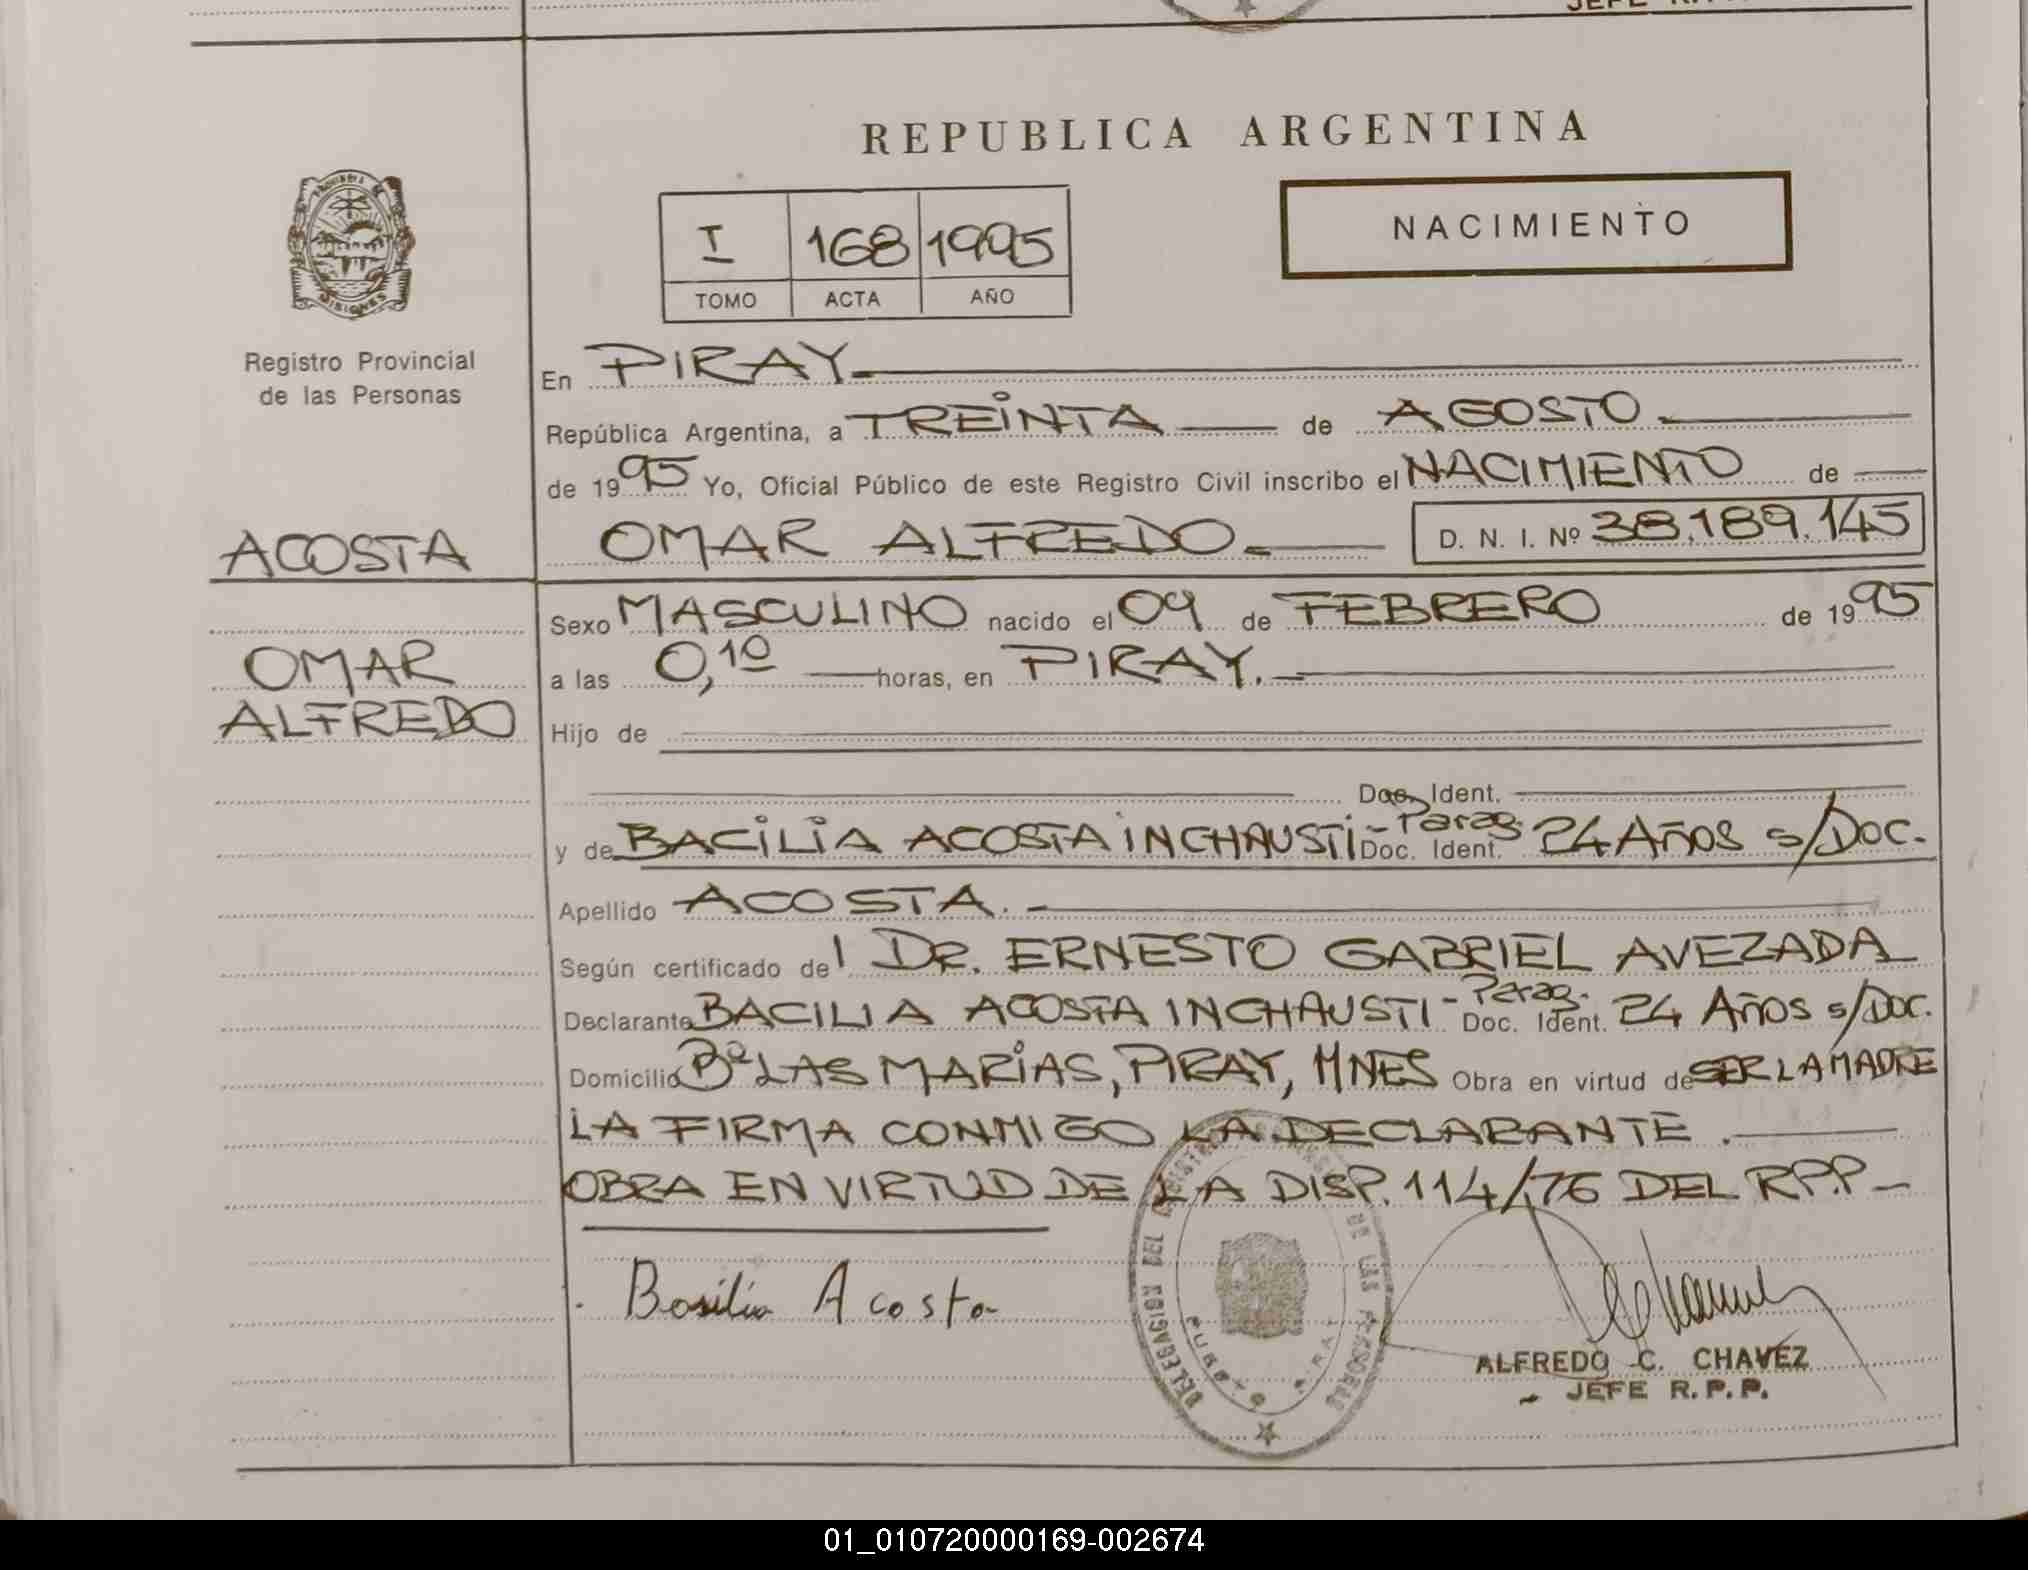 JEFE R.P.
REPUBLICA ARGENTINA
PROVINCIA
MISIONES
I 168 1995
TOMO ACTA AÑO
NACIMIENTO
Registro Provincial
de las Personas
En PIRAY.
República Argentina, a TREINTA de AGOSTO.
de 1995 Yo, Oficial Público de este Registro Civil inscribo el NACIMIENTO de
ACOSTA
OMAR ALFREDO. D. N. I. Nº 38.189.145
Sexo MASCULINO nacido el 09 de FEBRERO de 1995
OMAR
a las 0,10 horas, en PIRAY.
ALFREDO
Hijo de
Doc. Ident.
y de BACILIA ACOSTA INCHAUSTI - Parag. Doc. Ident. 24 AÑOS s/DOC.
Apellido ACOSTA.
Según certificado del DR. ERNESTO GABRIEL AVEZADA
Declarante BACILIA ACOSTA INCHAUSTI - Parag. Doc. Ident. 24 AÑOS s/DOC.
Domicilio Bº LAS MARIAS, PIRAY, MNES Obra en virtud de SER LA MADRE
LA FIRMA CONMIGO LA DECLARANTE.
OBRA EN VIRTUD DE LA DISP. 114/76 DEL R.P.P-
Basilia Acosta
DELEGACION DEL REGISTRO DE LAS PERSONAS
PUERTO PIRAY
ALFREDO C. CHAVEZ
JEFE R.P.P.
01_010720000169-002674